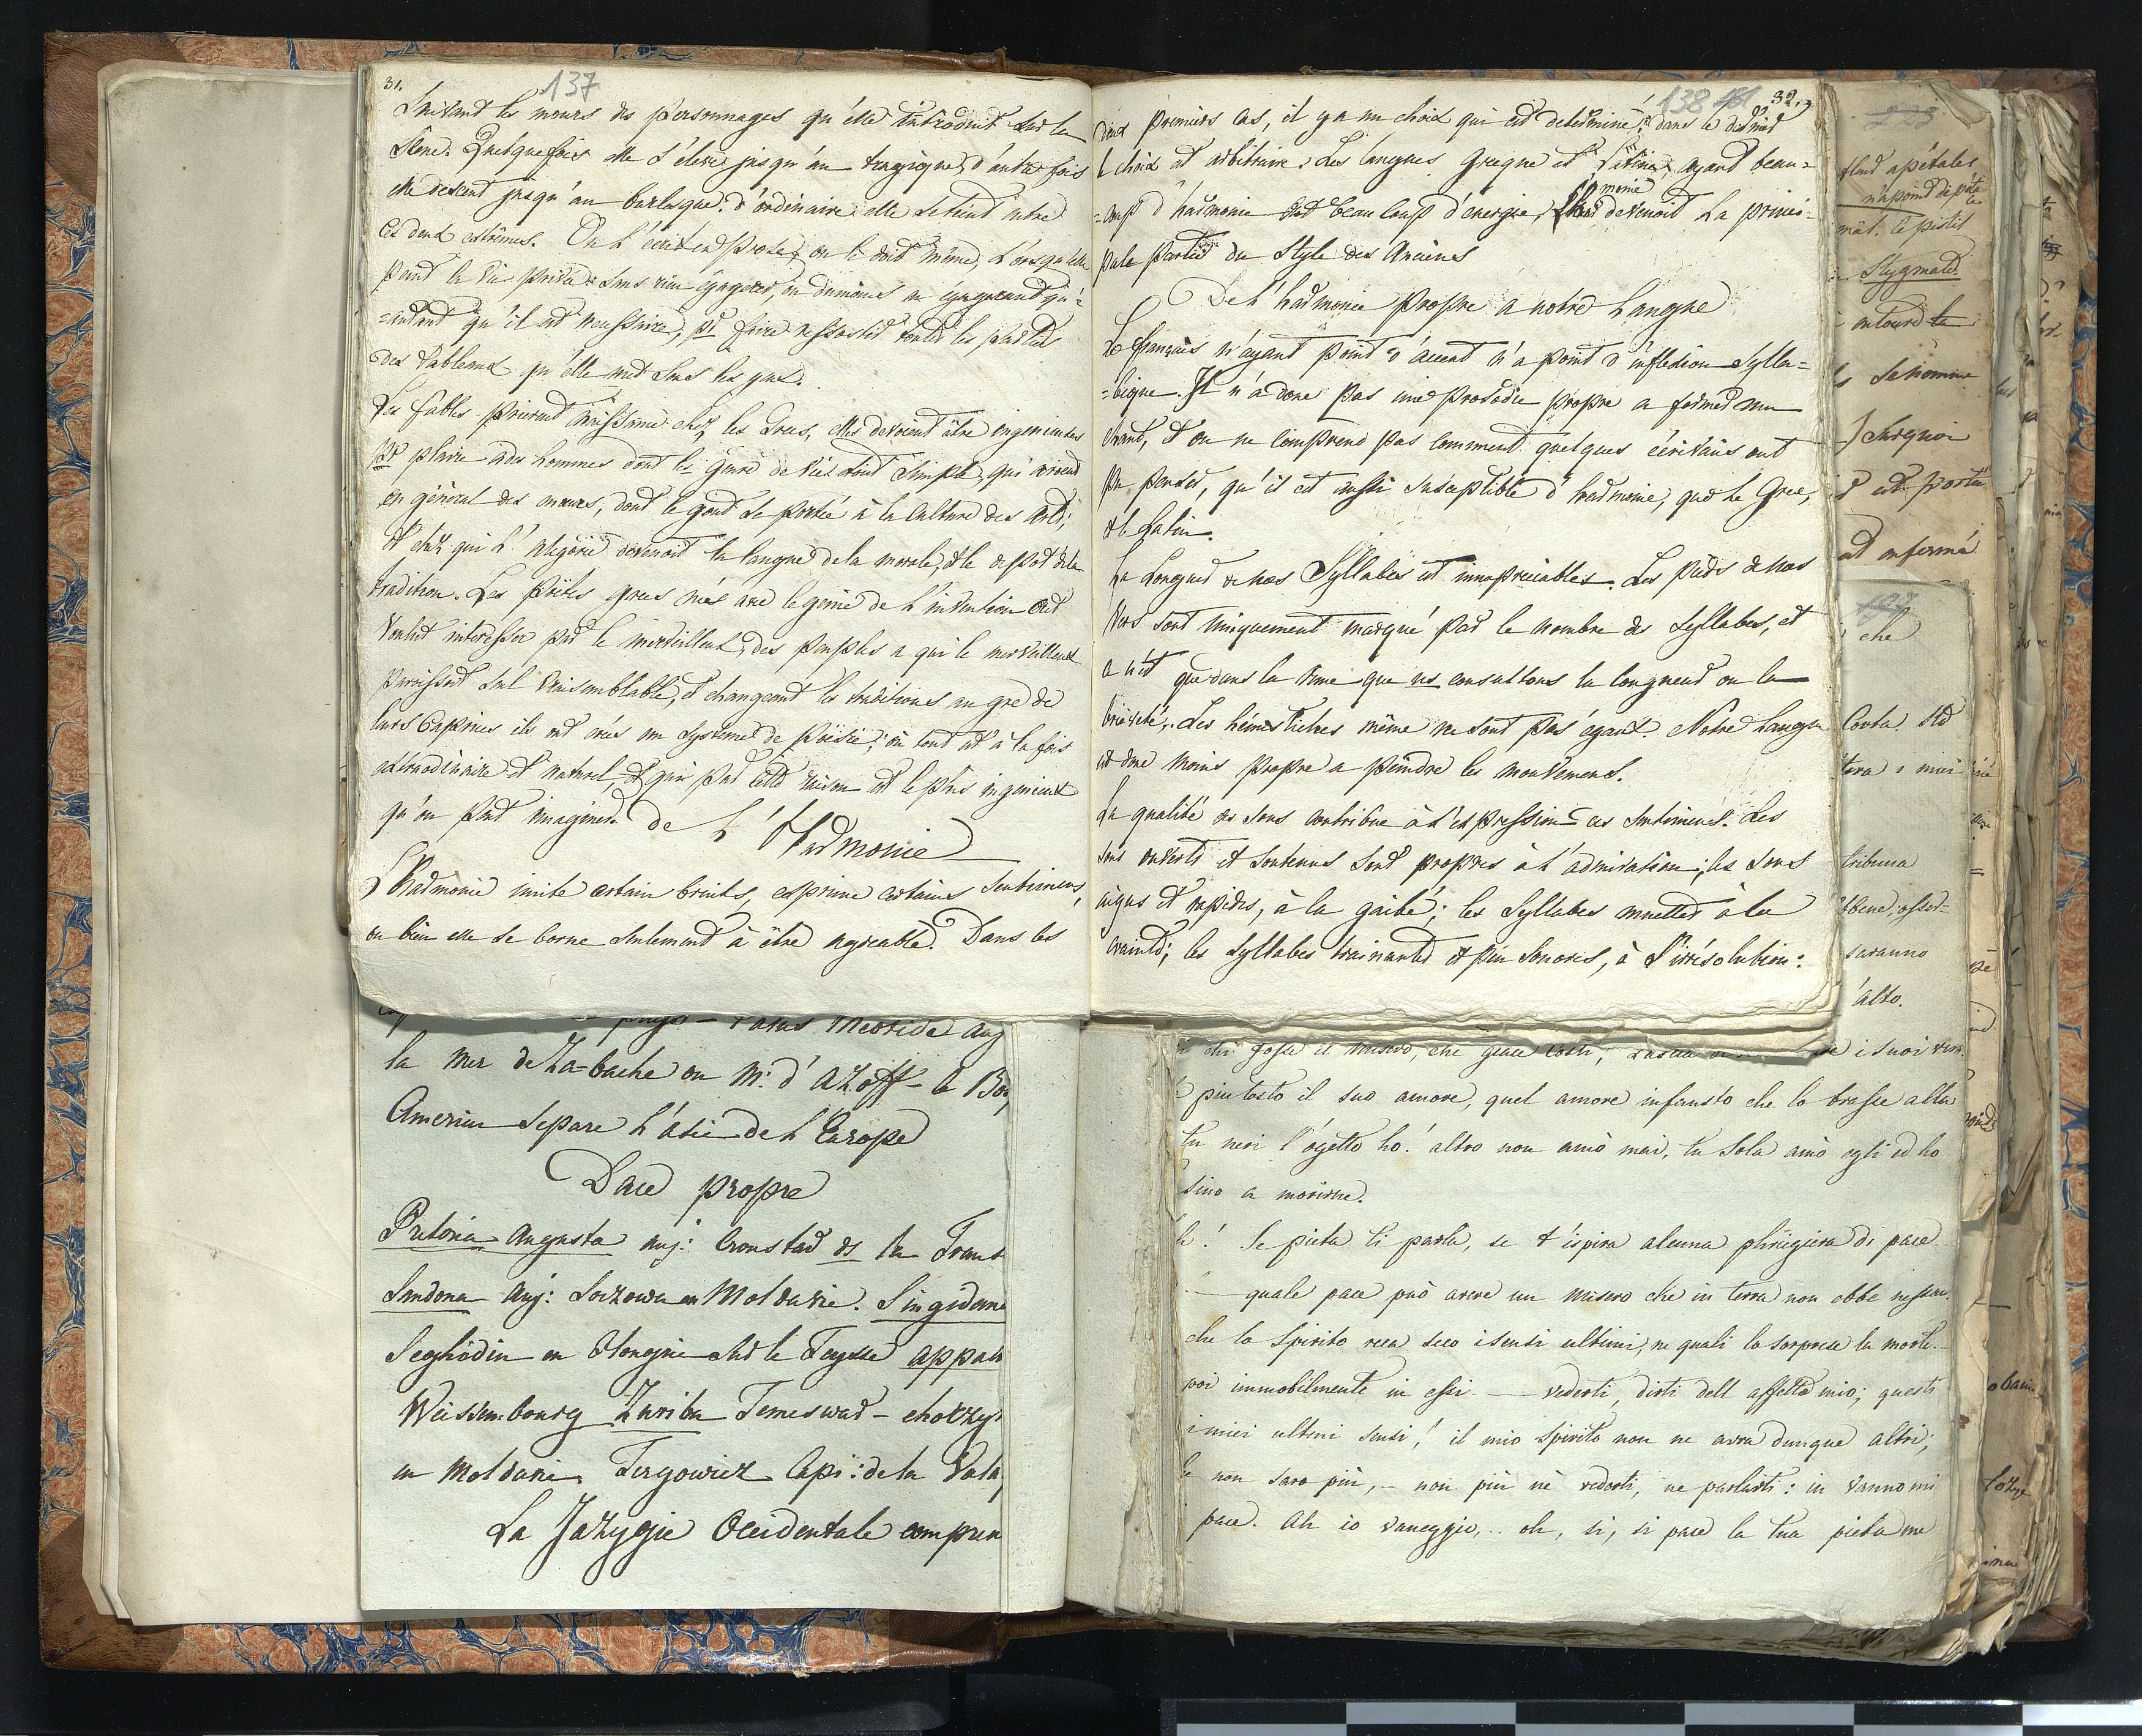 31.
137
Suivant les mœurs des personnages qu'elle introduit sur la
Scene. Quelquefois elle s'éleve jusqu'au tragique, d'autre fois
elle descent jusqu'au burlesque. d'ordinaire elle se tient entre
ces deux extrêmes. On l'écrit en prose, on le doit même, lorsqu'elle
peint la vie privée sans rien éxagerer, ou dumoins en éxagerant qu'=
=autant qu'il est necessaire, pr faire ressortir toutes les parties
des tableaux qu'elle met sous les yeux.
Les fables prirent naissance chez les Grecs, elles devoient être ingenieuses
pr plaire a des hommes dont le genre de vie etoit simple, qui avoient
en général des mœurs, dont le gout se portée à la culture des Arts;
et chez qui l'alegorie devenoit la langue de la morale, et le depot dela
tradition. Les Poëtes grecs nés avec le genie de l'invention ont
voulut interesser par le merveilleux, des peuples a qui le merveilleux
paroissoit seul vraisemblable, et changeant les traditions au gré de
leurs caprices ils ont créés un systeme de Poësie; où tout est à la fois
extraordinaire et naturel, et qui par cette raison est le plus ingenieux
qu'on peut imaginer.
de l'Harmonie
L'Harmonie imite certain bruits, exprime certains sentimens,
ou bien elle se borne seulement à être agreable. Dans les
138
32.
deux premiers cas, il y a un choix qui est determiné; dans le dernier
le choix est arbitraire. Les langues Greque et Latine ayant beau=
=coup d'harmonie et beaucoup d'énergie, l'harmonie devenoit la princi=
pale partie du Style des Anciens
De l'harmonie propre a notre Langue
Le français n'ayant point d'accent n'a point d'inflexion sylla=
=bique. Il n'a donc pas une prosodie propre a former un
chant, et on ne comprend pas comment quelques écrivains ont
pu penser, qu'il est aussi susceptible d'harmonie, que le Grec,
et le Latin.
La Longueur de nos Syllabes est innapreciables. Les pieds de nos
Vers sont uniquement marqué par le nombre des Syllabes, et
ce n'est que dans la rime que ns consultons la longueur ou la
brièveté. Les hémistiches même ne sont pas égaux. Notre Langue
est donc moins propre a peindre les mouvemens.
La qualité des sons contribue à l'expression des sentimens. Les
sons ouverts et soutenus sont propres à l'admiration; les sons
aigus et rapides, à la gaité; les Syllabes muettes à la
crainte; les Syllabes trainantes et peu sonores, à l'irrésolution.
Palus Meotide auj
la Mer de Za-bache ou M. d'Azoff - le Bos
Cimerien separe l'Asie de l'Europe
Dace propre
Pretoria Augusta auj: Cronstad ds la Trans
Sandona Auj: Soczowa en Moldavie. Singidone
Seghedin en Hongrie sur le Teysse appul
Weissembourg Zuriba Temeswar - chotzy
en Moldavie Tergowiez Capi: de la Vala
La Jazygie Occidentale compren
è piu tosto il suo amore, quel amore infausto che lo trasse alla
tu neri l'ogetto ho! altro non amò mai, tu sola amò egli ed ho
sino a morirne.
Se pieta ti parla, se t'ispira alcuna preghiera di pace
quale pace può avere un misero che in terra non ebbe nessun
che lo Spirito reca seco i sensi ultimi, ne quali lo sorprese la morte.
poi immobilmente in essi. — vederti, dirti dell affetto mio; questi
i miei ultimi sensi! il mio spirito non ne avra dunque altri;
non saro più, - non più nè vederti, ne parlarti: in vanno mi
pace. Ah io vaneggio, .. oh, si, si pace la tua pieta me
apétales
le pistil
Stygmate
entouré
che
tribuna
saranno
alto.